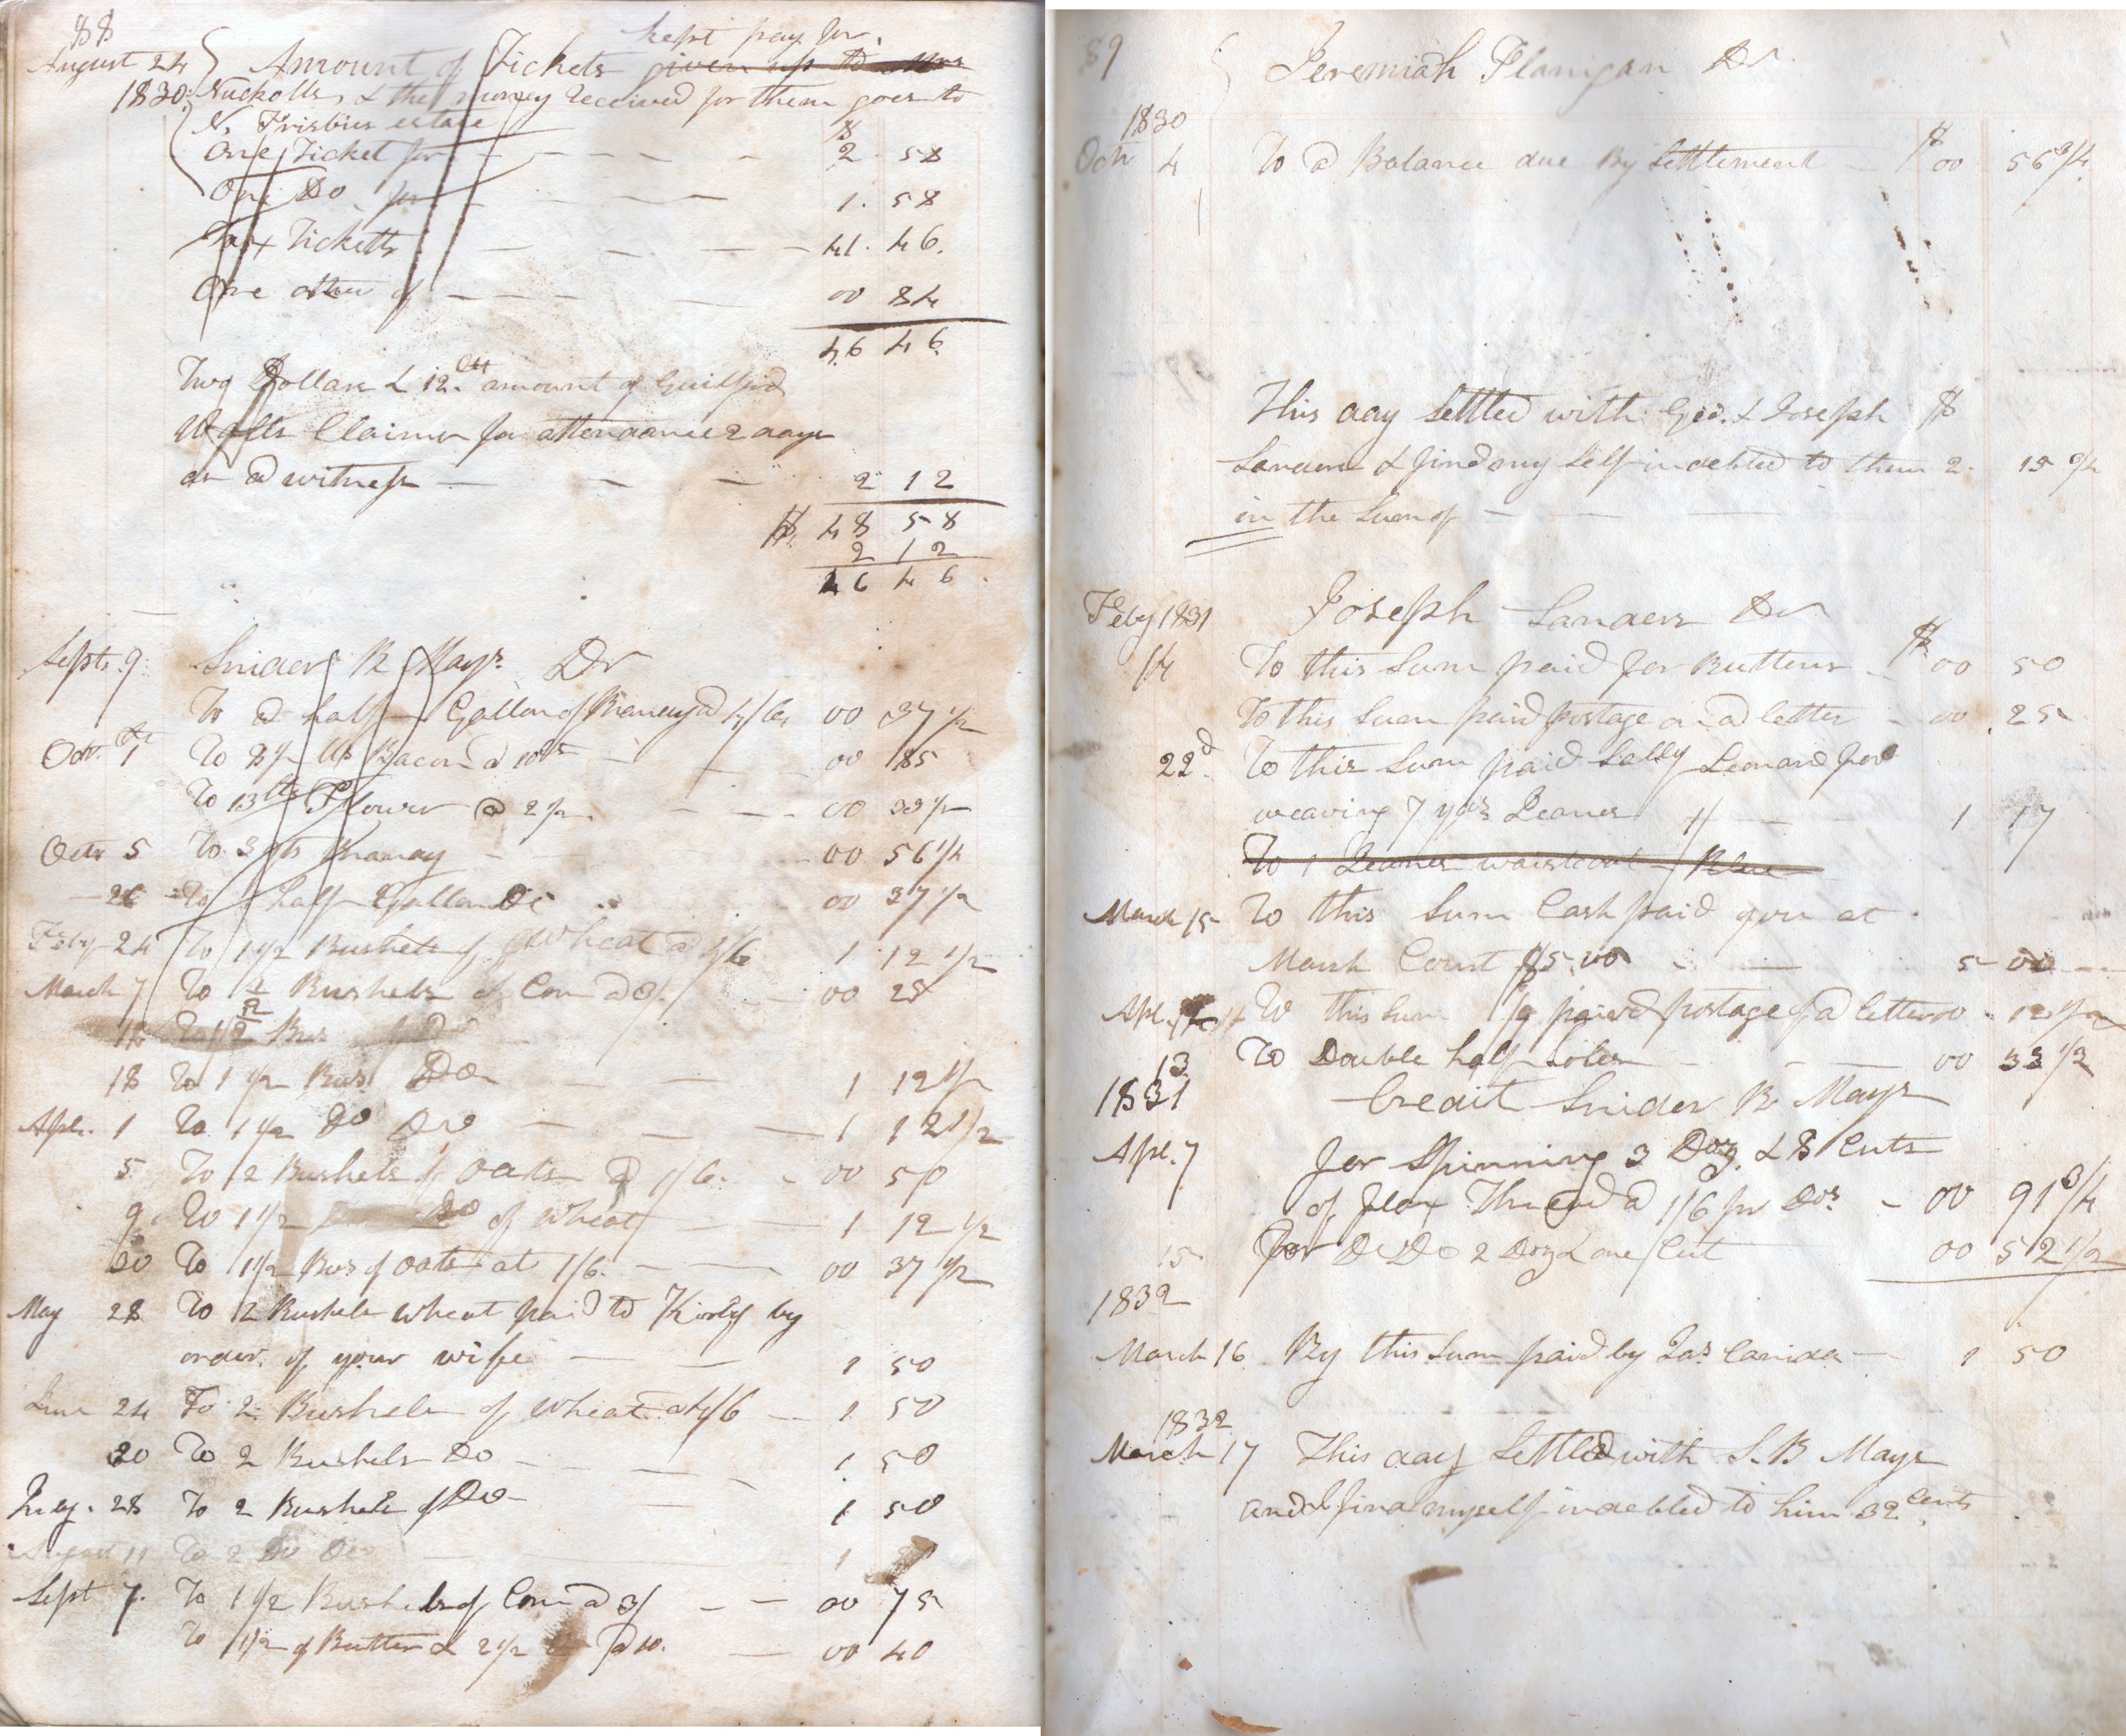 88
kept pay for
August 24 Amount of Tickets given up to Mrs
1830. Nuckolls & the money received for them goes to
N. Frisbies estate $
One Ticket for 2. 58
One Do. for 1. 58
Tax Ticketts 41. 46.
One other of 00 84
46 46.
Two Dollars & 12 Cts amount of Guilford
Watts Claims for attendance 2 days
as a witness 2 12
$ 48 58
2 12
46 46.
Sept. 9. Snider B Mays. Dr
To a half Gallon of Brandy a 4/6 00 37 1/2
Oct. 1 To 8 1/2 lbs Bacon a 10 cts 00 85
To 13 lbs Flour @ 2 1/2 00 32 1/2
Octr 5 To 3 qts Brandy 00 56 1/4
26 To half Gallon Do 00 37 1/2
Feby 24 To 1 1/2 Bushels of Wheat a 4/6 1 12 1/2
March 7 To 1/2 Bushels of Corn a 3/. 00 25
To 1/2 Bus
18 To 1 1/2 Bus Do 1 12 1/2
Apl. 1 To 1 1/2 Do Do 1 12 1/2
5 To 2 Bushels of Oats @ 1/6. 00 50
9. To 1 1/2 Do of Wheat 1 12 1/2
20 To 1 1/2 Bus of Oats at 1/6. 00 37 1/2
May 28 To 2 Bushels wheat paid to Kirby by
order. of your wife 1 50
June 24 To 2 Bushels of Wheat at 4/6 1. 50
20 To 2 Bushels Do 1. 50
July. 28 To 2 Bushels of Do 1 50
August 11 To 2 Do Do 1
Sept 7. To 1 1/2 Bushels of Corn a 3/ 00 75
To 1 1/2 of Butter & 2 1/2 @ 10. 00 40
89 Jeremiah Flanigan Dr.
1830
Octr 4 To a Balance due By Settlement $ 00 56 3/4
This day Settled with Geo. & Joseph $
Sanders & find my Self indebted to them 2. 19 3/4
in the Sum of
Feby 1831 Joseph Sanders Dr
14 To this Sum paid for Buttons $ 00 50
To this Sum paid postage on a letter 00 . 25
22d. To this Sum paid Sally Leonard for
weaving 7 yds Jeanes 1/ 1 17
To 1 Jeanes waistcoat Blue
March 15 To this Sum Cash paid you at
March Court $5.00 5 00
Apl. To this Sum paid postage of a letter 00 . 12 1/2
13 To Double half Soles 00 33 1/3
1831 Credit Snider B Mays
Apl. 7 for Spinning 3 Doz. & 8 Cuts
of flax Thread a 1/6 pr Doz 00 91 3/4
15 for Do Do 2 Doz & one Cut 00 52 1/2
1832
March 16 By this Sum paid by Jas Canida 1 50
1832
March 17 This day Settled with S. B Mays
and I find myself indebted to him 32 Cents